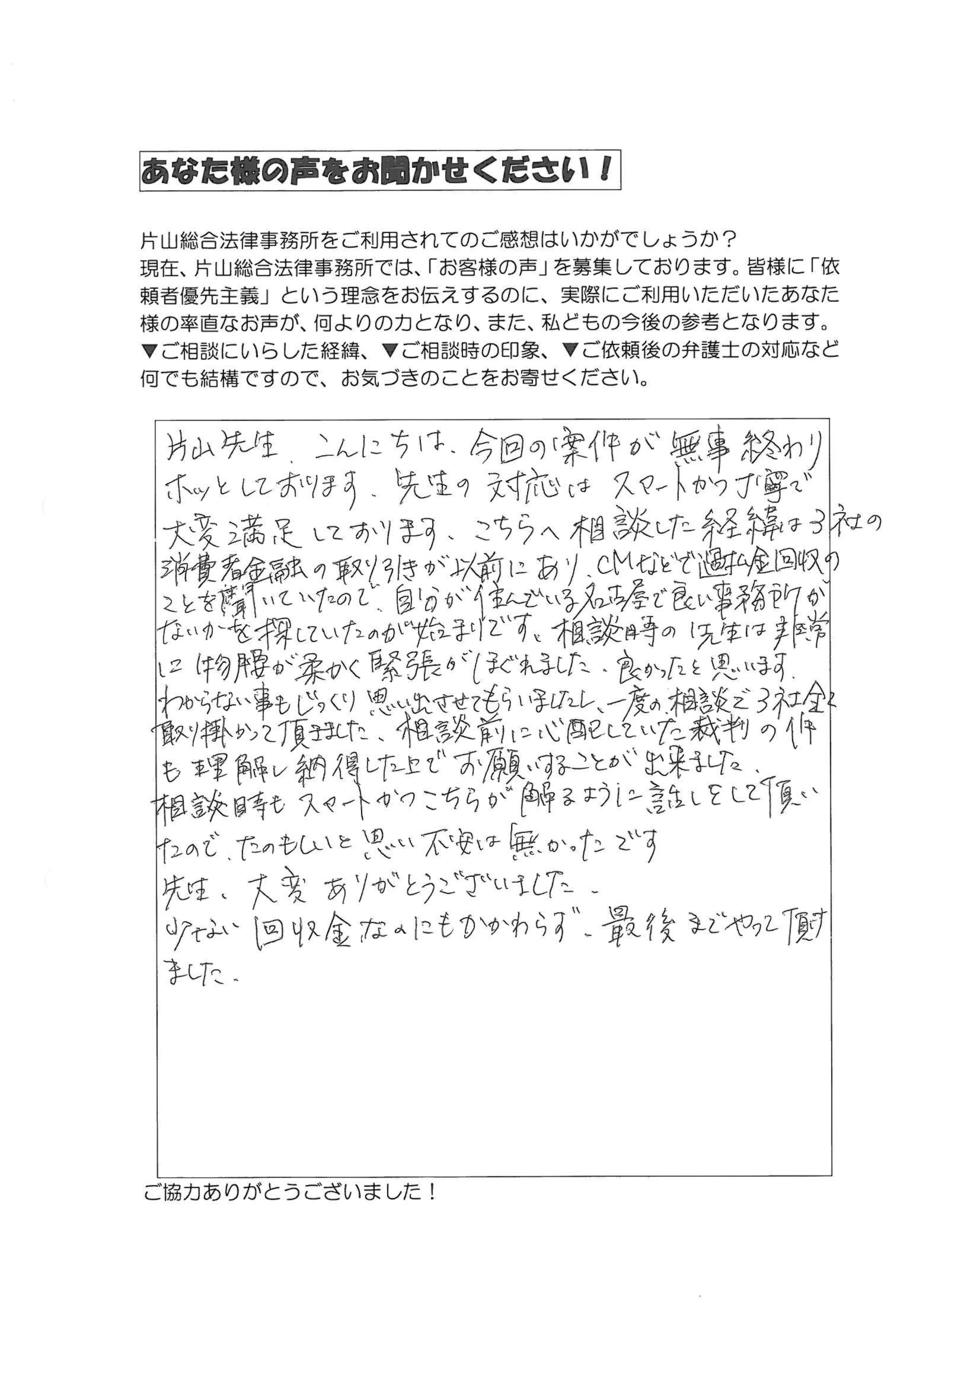 あなた様の声をお聞かせください！
片山総合法律事務所をご利用されてのご感想はいかがでしょうか？
現在、片山総合法律事務所では、「お客様の声」を募集しております。皆様に「依
頼者優先主義」という理念をお伝えするのに、実際にご利用いただいたあなた
様の率直なお声が、何よりの力となり、また、私どもの今後の参考となります。
▼ご相談にいらした経緯、▼ご相談時の印象、▼ご依頼後の弁護士の対応など
何でも結構ですので、お気づきのことをお寄せください。
片山先生、こんにちは、今回の案件が無事終わり
ホッとしております、先生の対応はスマートかつ丁寧で
大変満足しております、こちらへ相談した経緯は3社の
消費者金融の取り引きが以前にあり、CMなどで過払金回収の
ことを聞いていたので、自分が住んでいる名古屋で良い事務所が
ないかを探していたのが始まりです、相談時の先生は非常
に物腰が柔かく緊張がほぐれました、良かったと思います、
わからない事もじっくり思い出させてもらいましたし、一度の相談で3社全て
取り掛かって頂きました、相談前に心配していた裁判の件
も理解し納得した上でお願いすることが出来ました、
相談時もスマートかつこちらが解るように話しをして頂い
たので、たのもしいと思い不安は無かったです
先生、大変ありがとうございました、
少ない回収金なのにもかかわらず、最後までやって頂き
ました、
ご協力ありがとうございました！